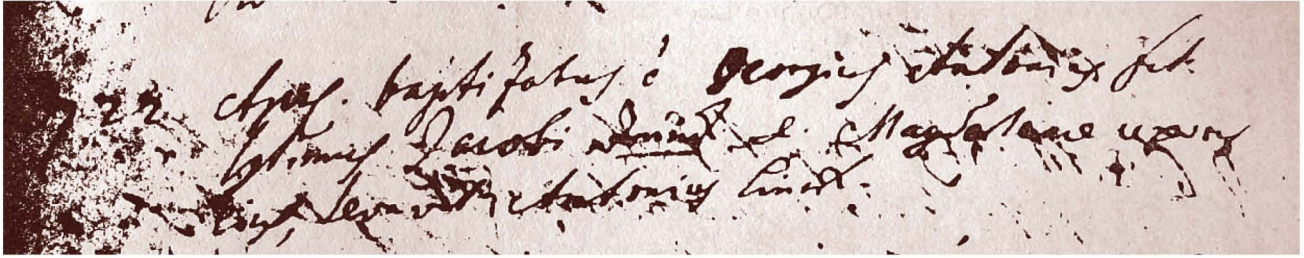 22 Apris. baptizatus é Georgius Antonius fil.
legitimus Jacobi et Magdalenae uxoris
eius, levavit Antonius Linck.